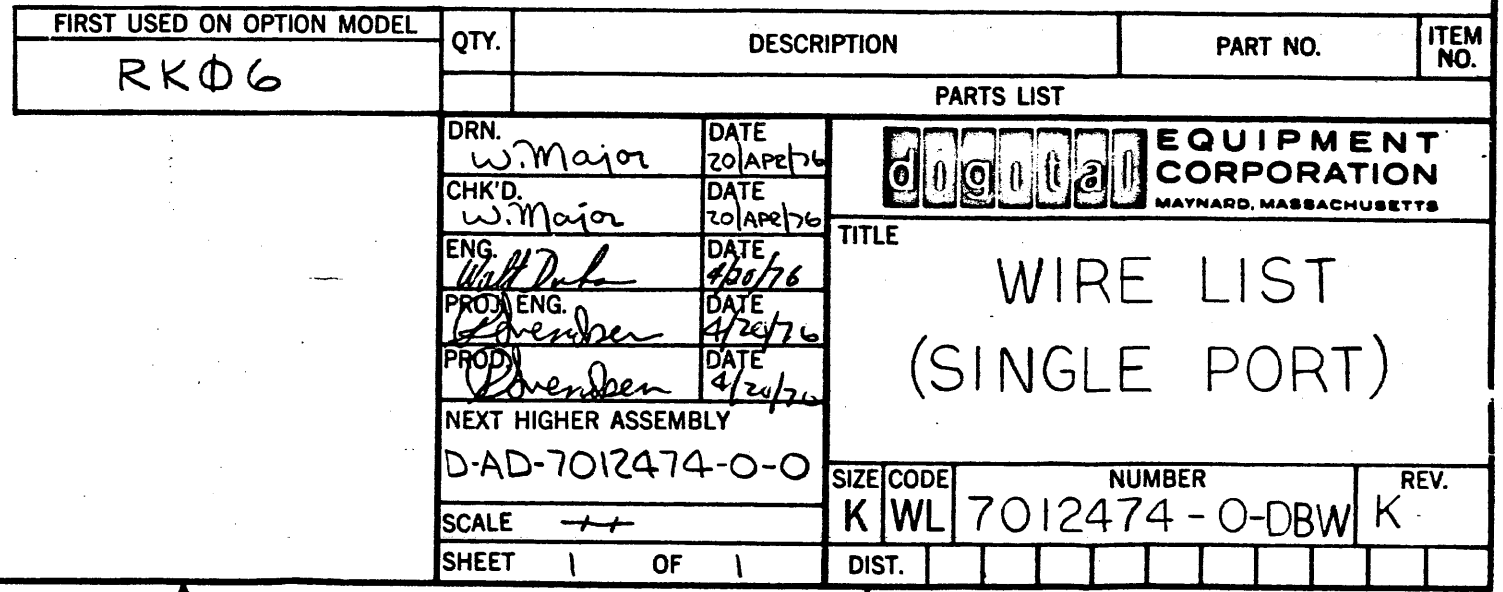 FIRST USED ON OPTION MODEL
RKΦ6
QTY.
DESCRIPTION
PART NO.
ITEM NO.
PARTS LIST
DRN.
W. Major
DATE
20/APR/76
CHK'D.
W. Major
DATE
20/APR/76
ENG.
Walt
DATE
4/20/76
PROJ. ENG.
DATE
4/20/76
PROD.
DATE
4/20/76
NEXT HIGHER ASSEMBLY
D-AD-7012474-0-0
SCALE
SHEET 1 OF 1
digital
EQUIPMENT
CORPORATION
MAYNARD, MASSACHUSETTS
TITLE
WIRE LIST
(SINGLE PORT)
SIZE
K
CODE
WL
NUMBER
7012474-0-DBW
REV.
K
DIST.